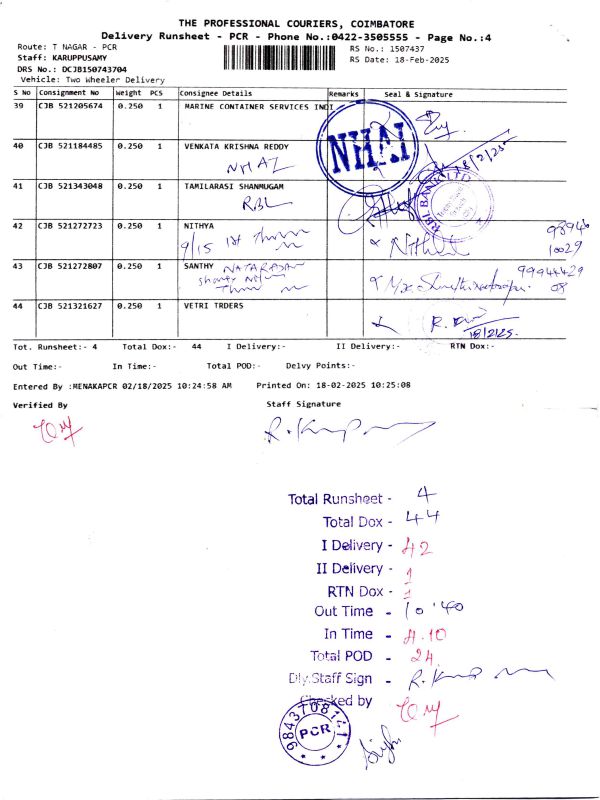 THE PROFESSIONAL COURIERS, COIMBATORE
Delivery Runsheet - PCR - Phone No.:0422-3505555 - Page No.:4
Route: T NAGAR - PCR
RS No.: 1507437
Staff: KARUPPUSAMY
RS Date: 18-Feb-2025
DRS No.: DCJB150743704
Vehicle: Two Wheeler Delivery
S No Consignment No Weight PCS Consignee Details Remarks Seal & Signature
39 CJB 521205674 0.250 1 MARINE CONTAINER SERVICES INDI
40 CJB 521184485 0.250 1 VENKATA KRISHNA REDDY
NHAI
NHAI
18/2/25
41 CJB 521343048 0.250 1 TAMILARASI SHANMUGAM
RBL
RBL BANK LTD
42 CJB 521272723 0.250 1 NITHYA
9/15 1st
Nithya
98946
10029
43 CJB 521272807 0.250 1 SANTHY
NATARAJAN
99944429
08
44 CJB 521321627 0.250 1 VETRI TRDERS
18/2/25.
Tot. Runsheet:- 4 Total Dox:- 44 I Delivery:- II Delivery:- RTN Dox:-
Out Time:- In Time:- Total POD:- Delvy Points:-
Entered By :MENAKAPCR 02/18/2025 10:24:58 AM Printed On: 18-02-2025 10:25:08
Verified By Staff Signature
Total Runsheet - 4
Total Dox - 44
I Delivery - 42
II Delivery - 1
RTN Dox - 1
Out Time - 10'40
In Time - 4.10
Total POD - 24
Dly.Staff Sign -
Checked by
9843708141
PCR